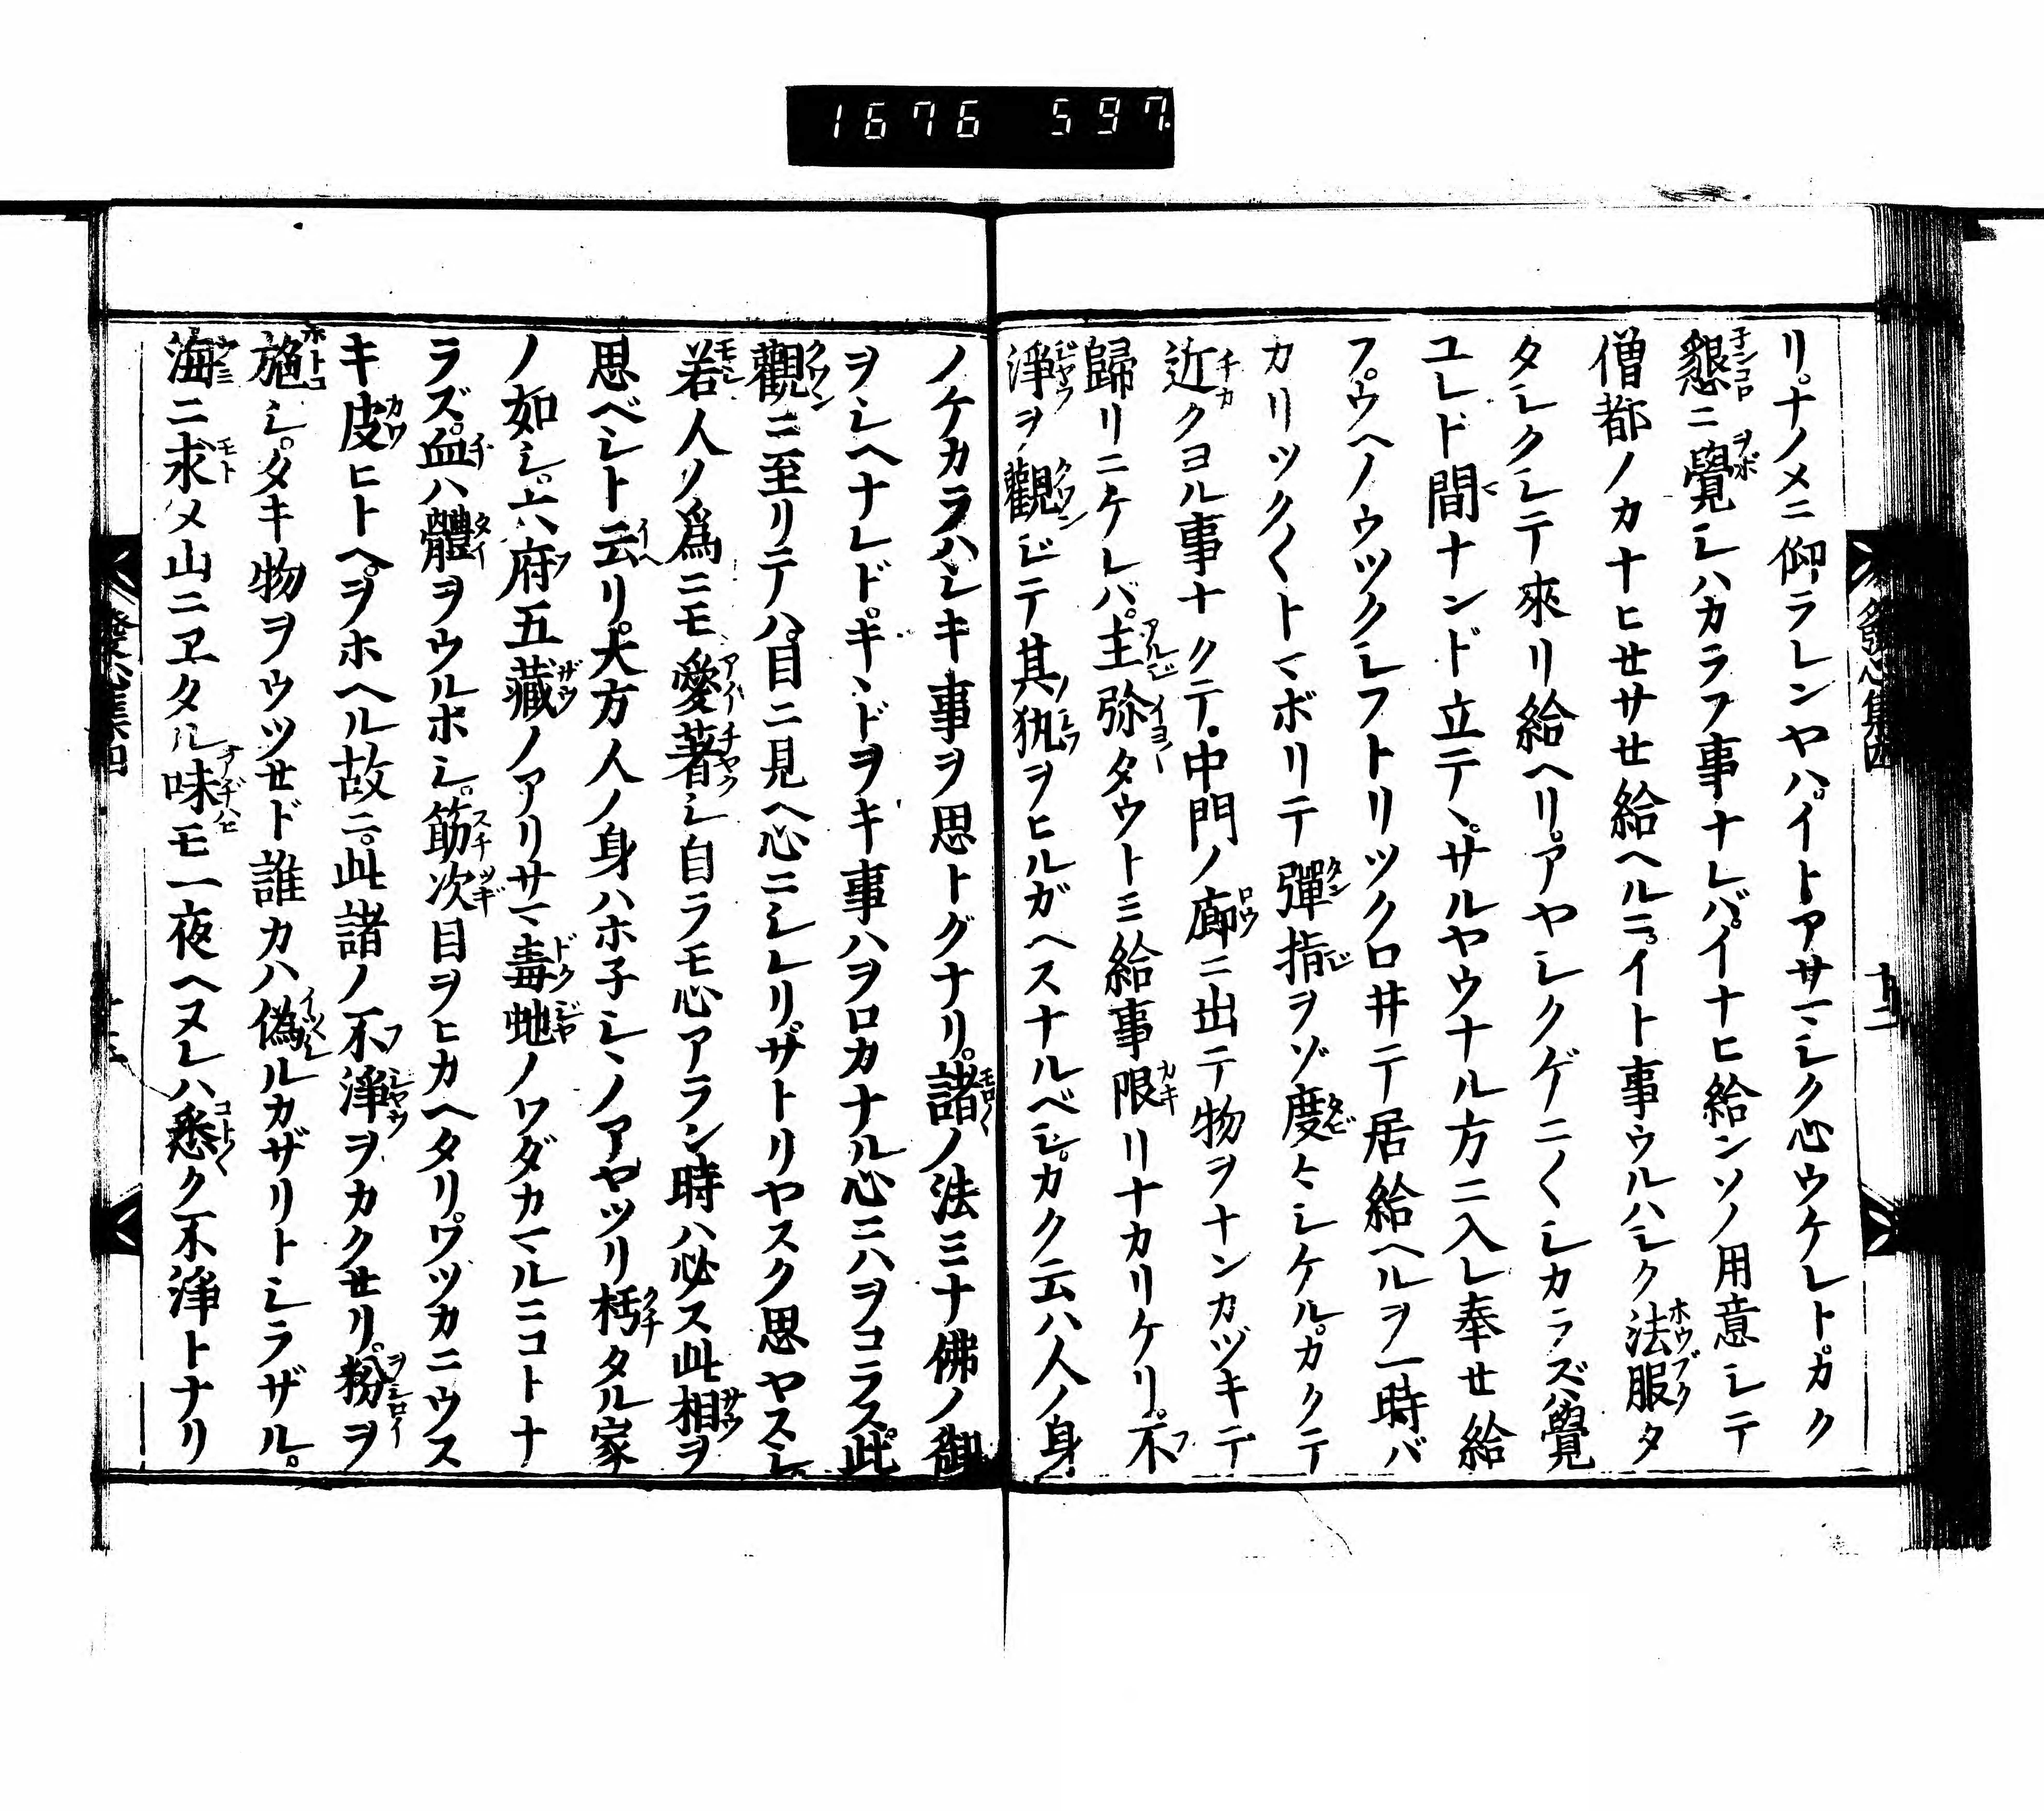 1676 597.
發心集四
十二
リ。ナノメニ仰ラレンヤハ。イトアサマシク心ウケレト。カク
懇ニ覺シハカラフ事ナレバ。イナヒ給ンソノ用意シテ
僧都ノカナヒセサセ給ヘルニ。イト事ウルハシク法服タ
タシクシテ來リ給ヘリ。アヤシクゲニ〱シカラズ覺
ユレド間ナンド立テヽ。サルヤウナル方ニ入レ奉セ給
フ。ウヘノウツクシフトリツクロ井テ居給ヘルヲ一時バ
カリツク〱トマボリテ彈指ヲゾ度々シケル。カクテ
近クヨル事ナクテ。中門ノ廊ニ出テ物ヲナンカヅキデ
歸リニケレバ。主弥タウトミ給事限リナカリケリ。不
淨ヲ觀ジテ其ノ執ヲヒルガヘスナルベシ。カク云ハ人ノ身
ノケカラハシキ事ヲ思トグナリ。諸ノ法ミナ佛ノ御
ヲシヘナレド。キヽドヲキ事ハヲロカナル心ニハヲコラズ。此
觀ニ至リテハ。目ニ見ヘ心ニシレリ。ザトリヤスク思ヤスシ。
若人ノ爲ニモ愛著シ自ラモ心アラン時ハ必ス此相ヲ
思ベシト云リ。大方人ノ身ハホ子シヽノアヤツリ朽タル家
ノ如シ。六府五藏ノアリサマ毒虵ノワダカマルニコトナ
ラズ。血ハ體ヲウルホシ。筋次目ヲヒカヘタリ。ワヅカニウス
キ皮ヒトヘ。ヲホヘル故ニ。此諸ノ不淨ヲカクセリ。粉ヲ
施シ。タキ物ヲウツセド誰カハ偽ルカザリトシラザル。
海ニ求メ山ニヱタル味モ一夜ヘヌレハ悉ク不淨トナリ
發心集四